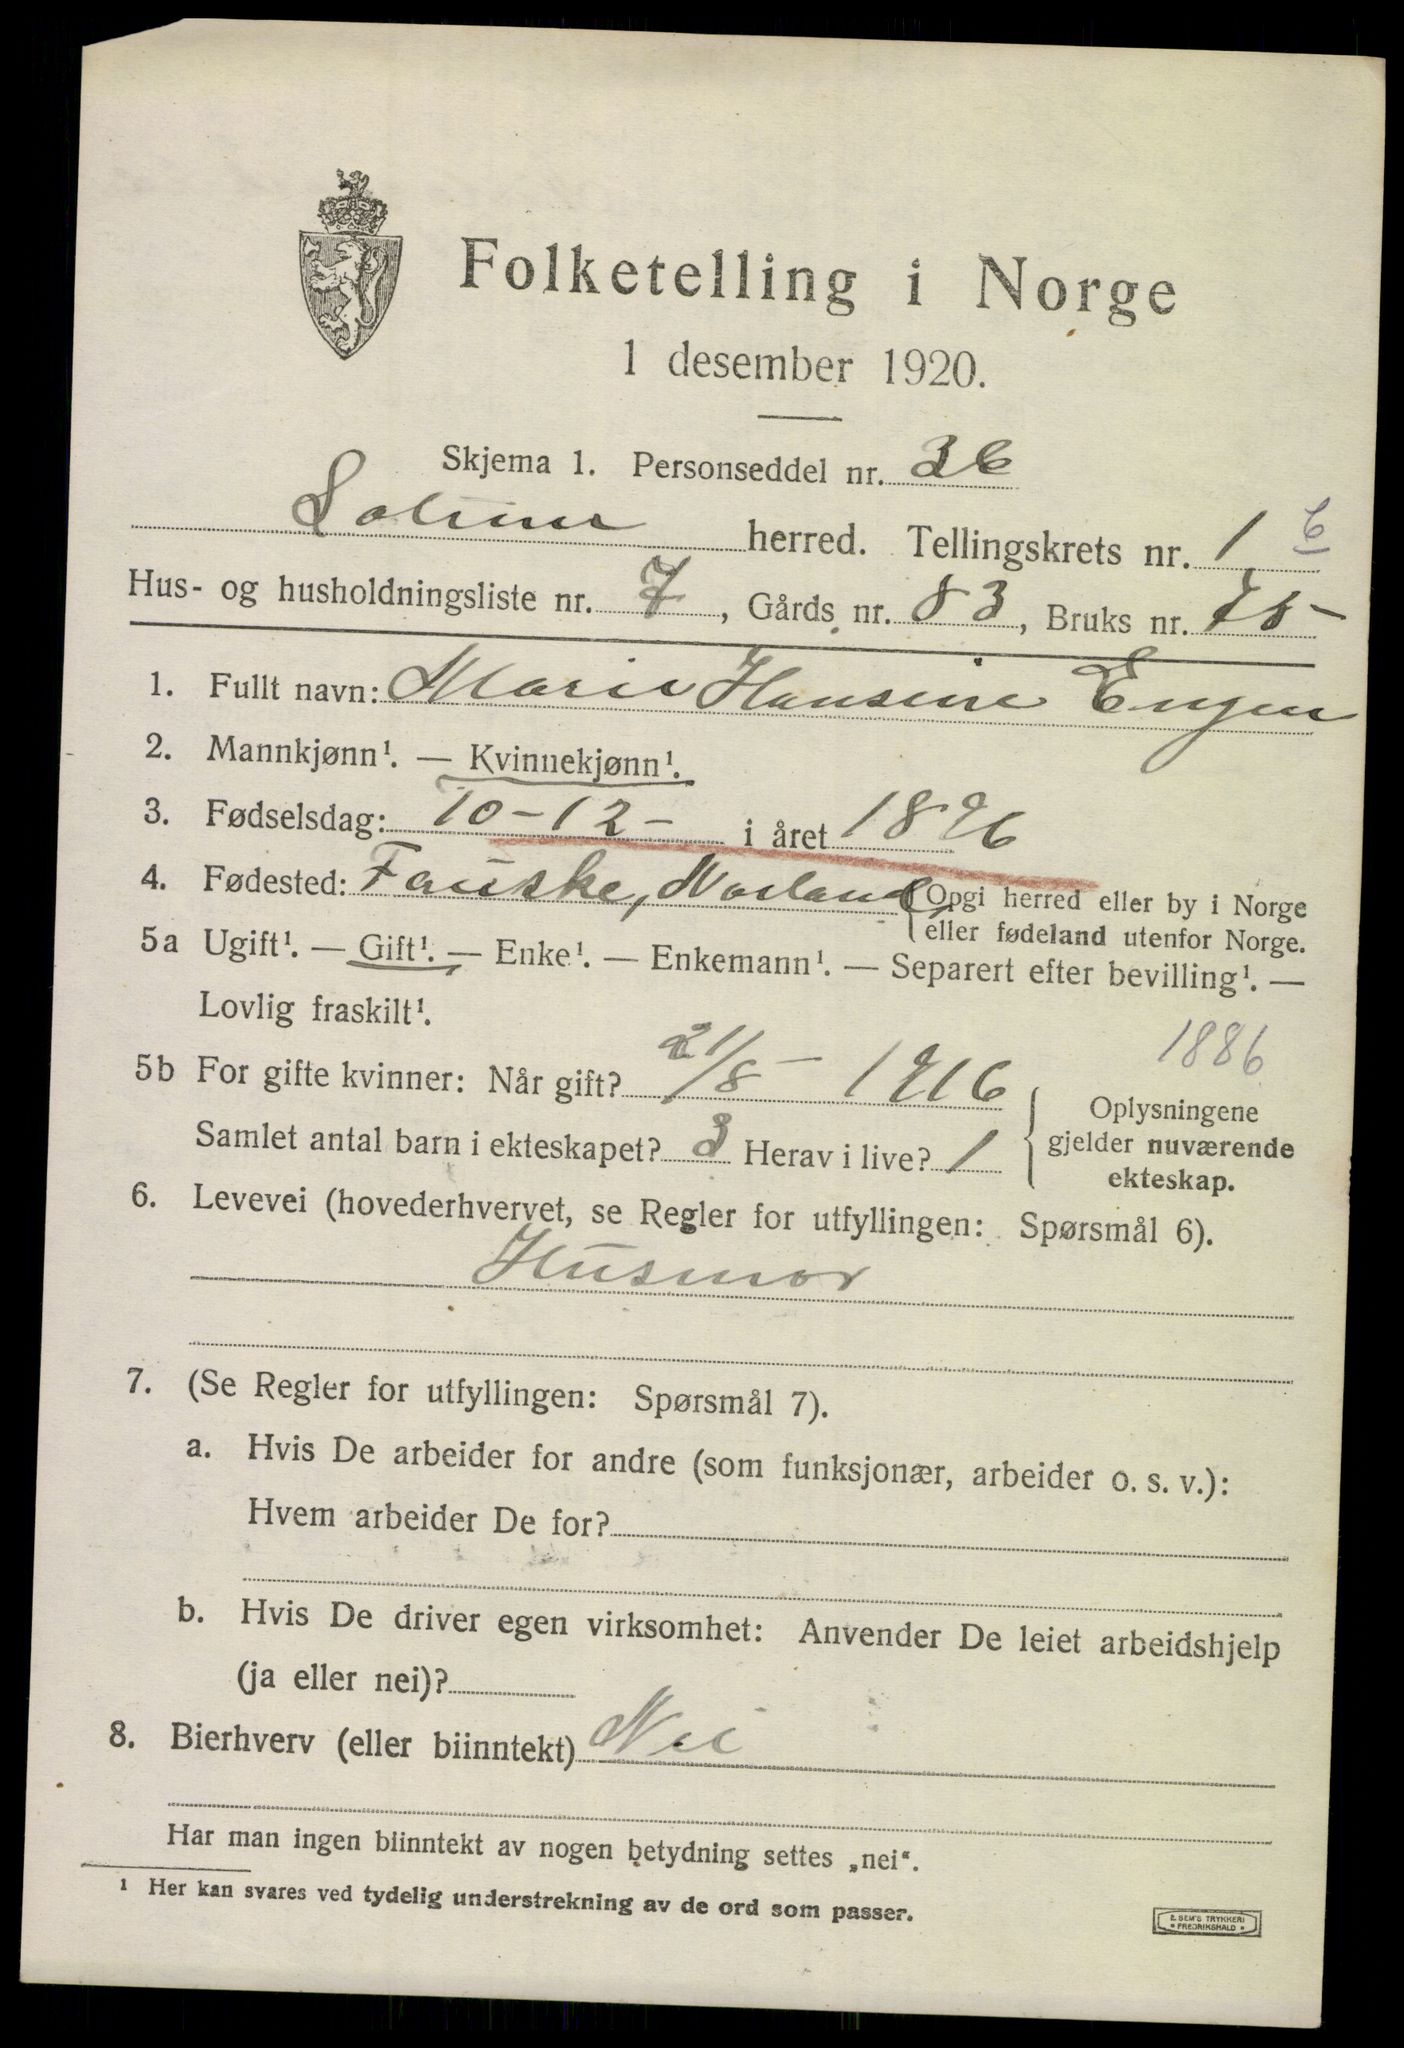 Folketelling i Norge
1 desember 1920.
Skjema 1. Personseddel nr. 36
herred. Tellingskrets nr. 1 6
Hus- og husholdningsliste nr. 7, Gårds nr. 83, Bruks nr. 78-
1. Fullt navn: Marie Hansine Engen
2. Mannkjønn¹. — Kvinnekjønn¹.
3. Fødselsdag: 10-12- i året 1896
4. Fødested: Fauske, Norland {Opgi herred eller by i Norge
eller fødeland utenfor Norge.
5a Ugift¹. — Gift¹. — Enke¹. — Enkemann¹. — Separert efter bevilling¹. —
Lovlig fraskilt¹.
1886
5b For gifte kvinner: Når gift? 21/8 - 1916
Samlet antal barn i ekteskapet? 3 Herav i live? 1
Oplysningene
gjelder nuværende
ekteskap.
6. Levevei (hovederhvervet, se Regler for utfyllingen: Spørsmål 6).
Husmor
7. (Se Regler for utfyllingen: Spørsmål 7).
a. Hvis De arbeider for andre (som funksjonær, arbeider o. s. v.):
Hvem arbeider De for?
b. Hvis De driver egen virksomhet: Anvender De leiet arbeidshjelp
(ja eller nei)?
8. Bierhverv (eller biinntekt) Nei
Har man ingen biinntekt av nogen betydning settes „nei“.
1 Her kan svares ved tydelig understrekning av de ord som passer.
E. SEM'S TRYKKERI
* FREDRIKSHALD *